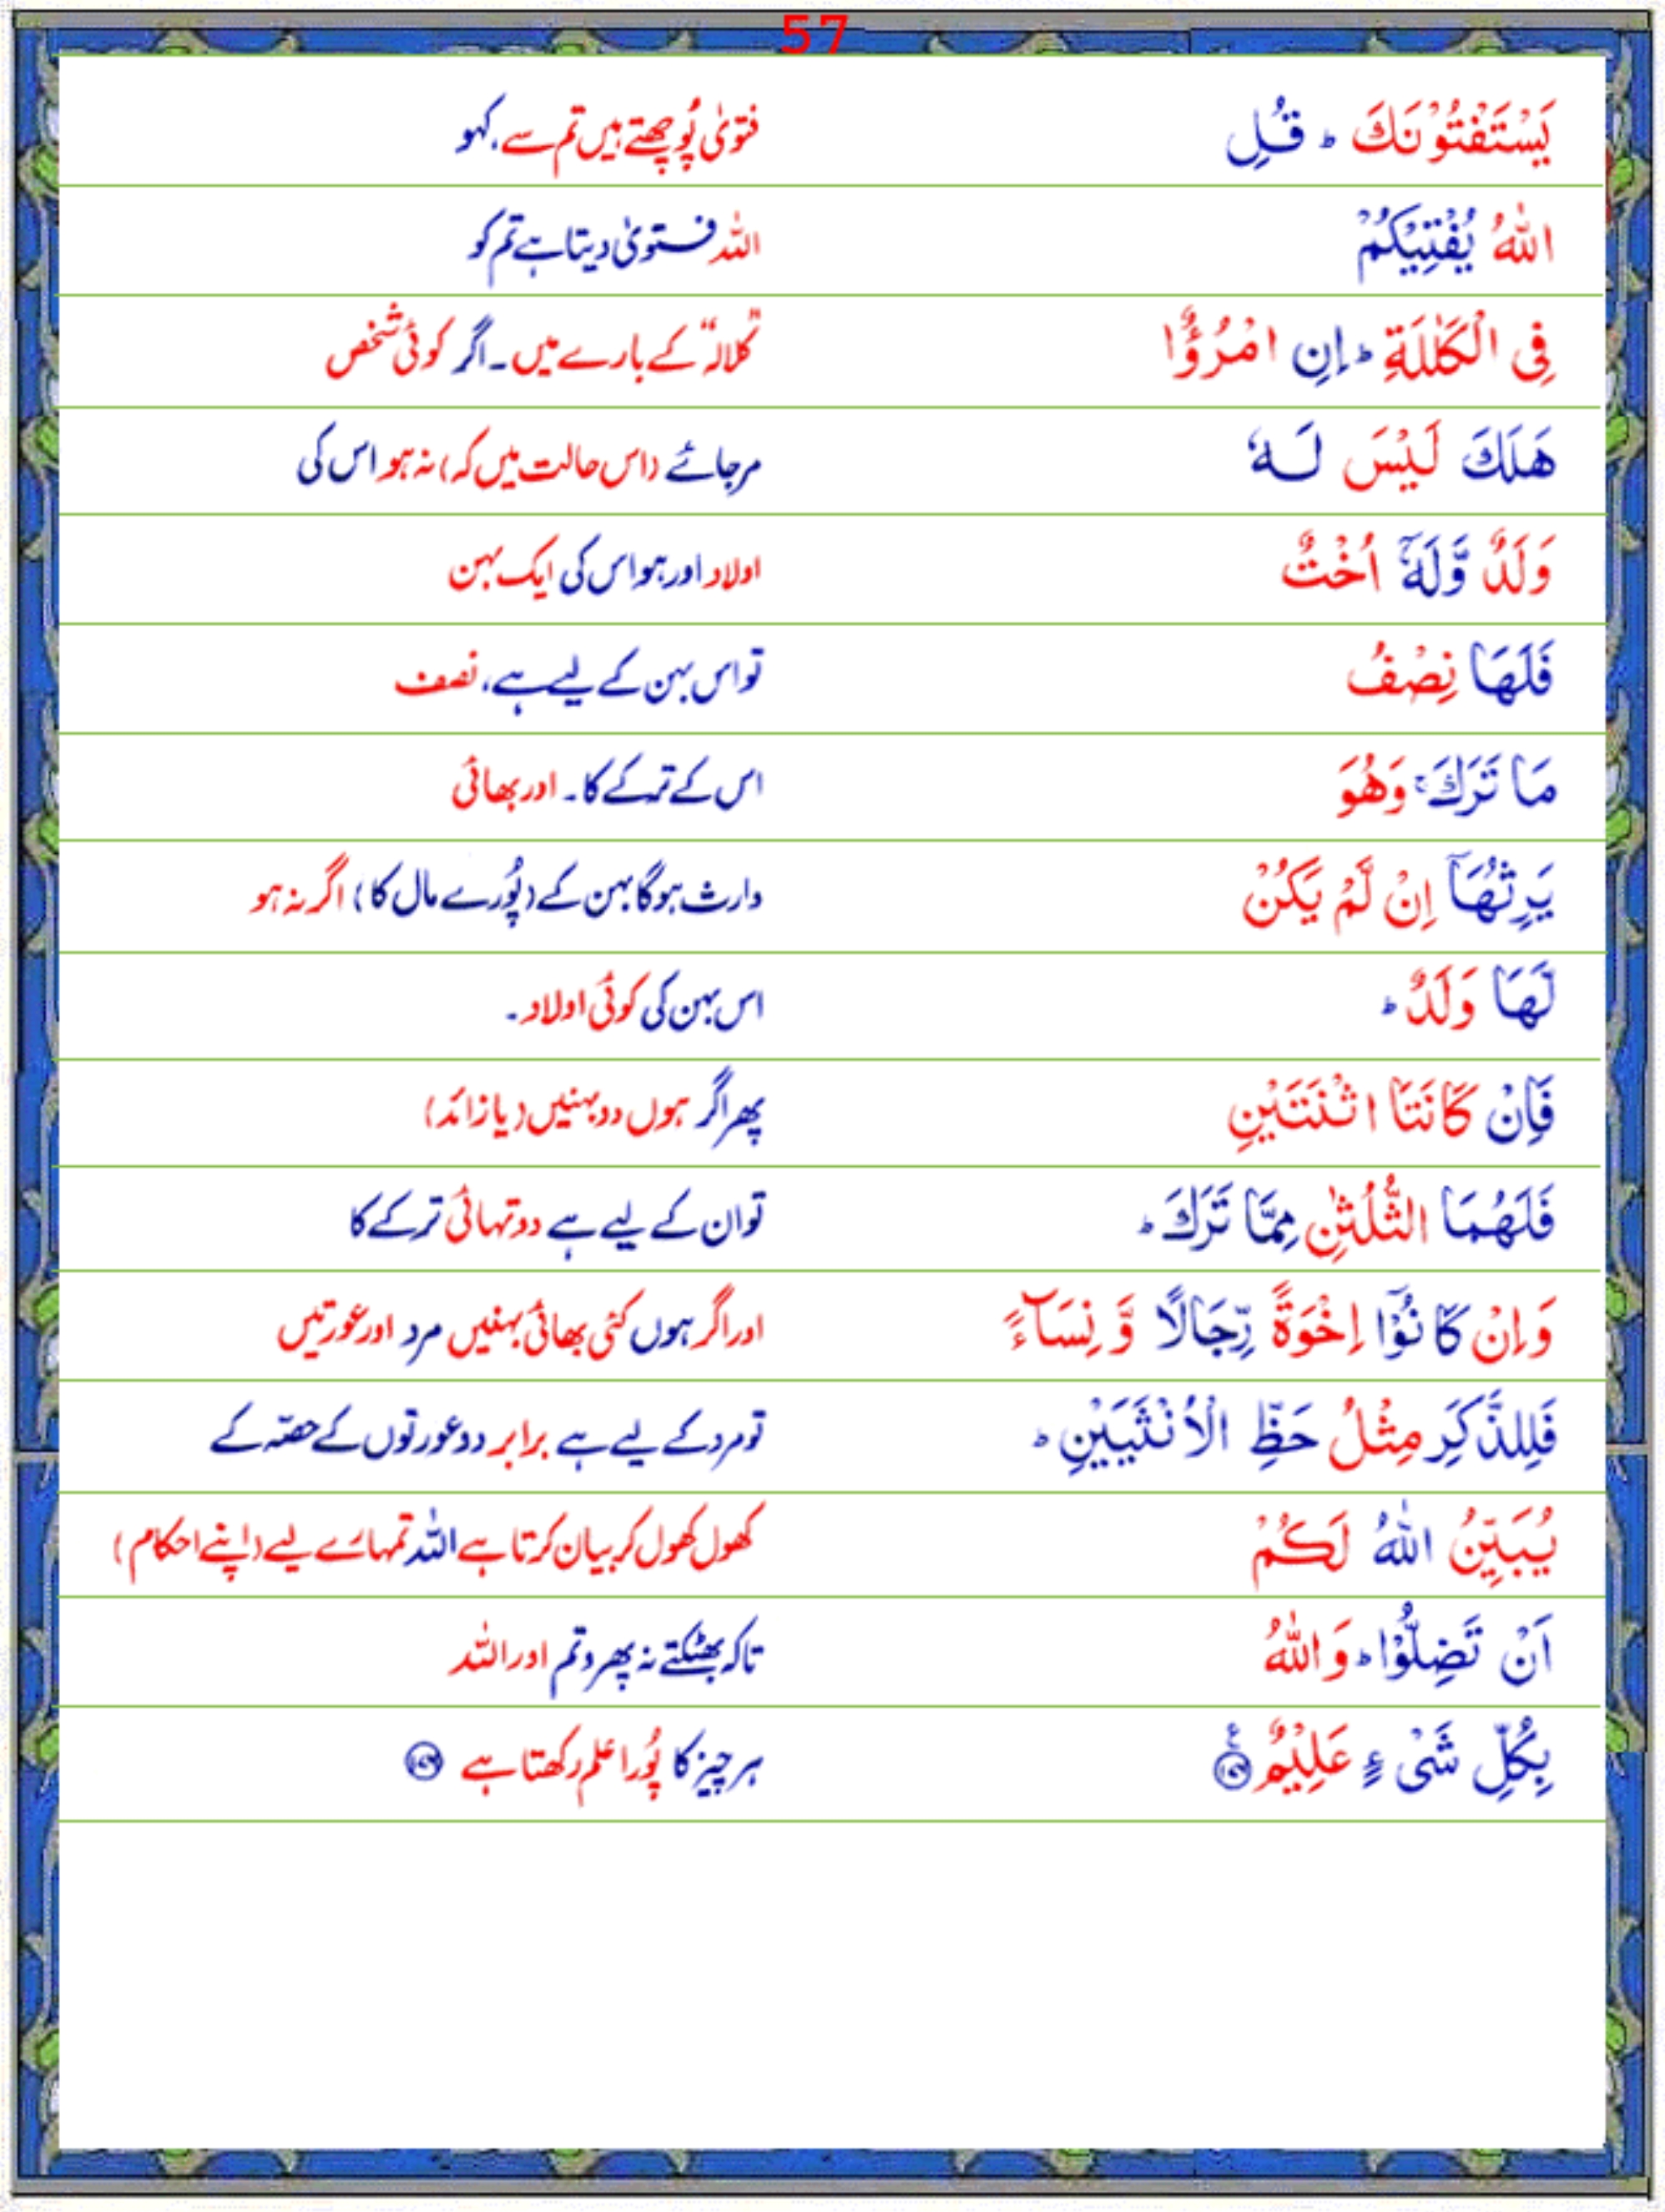 57
يَسۡتَفۡتُوۡنَكَ ؕ قُلِ فتویٰ پُوچھتے ہیں تم سے، کہو
اللّٰهُ يُفۡتِيۡكُمۡ اللہ فتویٰ دیتا ہے تم کو
فِى الۡكَلٰلَةِ ؕ اِنِ امۡرُؤٌا "کلالہ" کے بارے میں۔ اگر کوئی شخص
هَلَكَ لَيۡسَ لَهٗ مرجائے (اس حالت میں کہ) نہ ہو اس کی
وَلَدٌ وَّلَهٗۤ اُخۡتٌ اولاد اور ہو اس کی ایک بہن
فَلَهَا نِصۡفُ تو اس بہن کے لیے ہے، نصف
مَا تَرَكَ ۚ وَهُوَ اس کے ترکے کا۔ اور بھائی
يَرِثُهَاۤ اِنۡ لَّمۡ يَكُنۡ وارث ہوگا بہن کے (پُورے مال کا) اگر نہ ہو
لَّهَا وَلَدٌ ؕ اس بہن کی کوئی اولاد۔
فَاِنۡ كَانَتَا اثۡنَتَيۡنِ پھر اگر ہوں دو بہنیں (یا زائد)
فَلَهُمَا الثُّلُثٰنِ مِمَّا تَرَكَ ؕ تو ان کے لیے ہے دو تہائی ترکے کا
وَاِنۡ كَانُوۡۤا اِخۡوَةً رِّجَالًا وَّ نِسَآءً اور اگر ہوں کئی بھائی بہنیں مرد اور عورتیں
فَلِلذَّكَرِ مِثۡلُ حَظِّ الۡاُنۡثَيَيۡنِ ؕ تو مرد کے لیے ہے برابر دو عورتوں کے حصّہ کے
يُبَيِّنُ اللّٰهُ لَكُمۡ کھول کھول کر بیان کرتا ہے اللہ تمہارے لیے (اپنے احکام)
اَنۡ تَضِلُّوۡا ؕ وَاللّٰهُ تاکہ بھٹکتے نہ پھرو تم اور اللہ
بِكُلِّ شَىۡءٍ عَلِيۡمٌ ۱۷۶ ع ہر چیز کا پُورا علم رکھتا ہے ۱۷۶